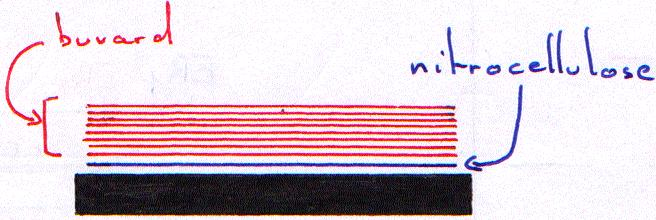 buvard
nitrocellulose